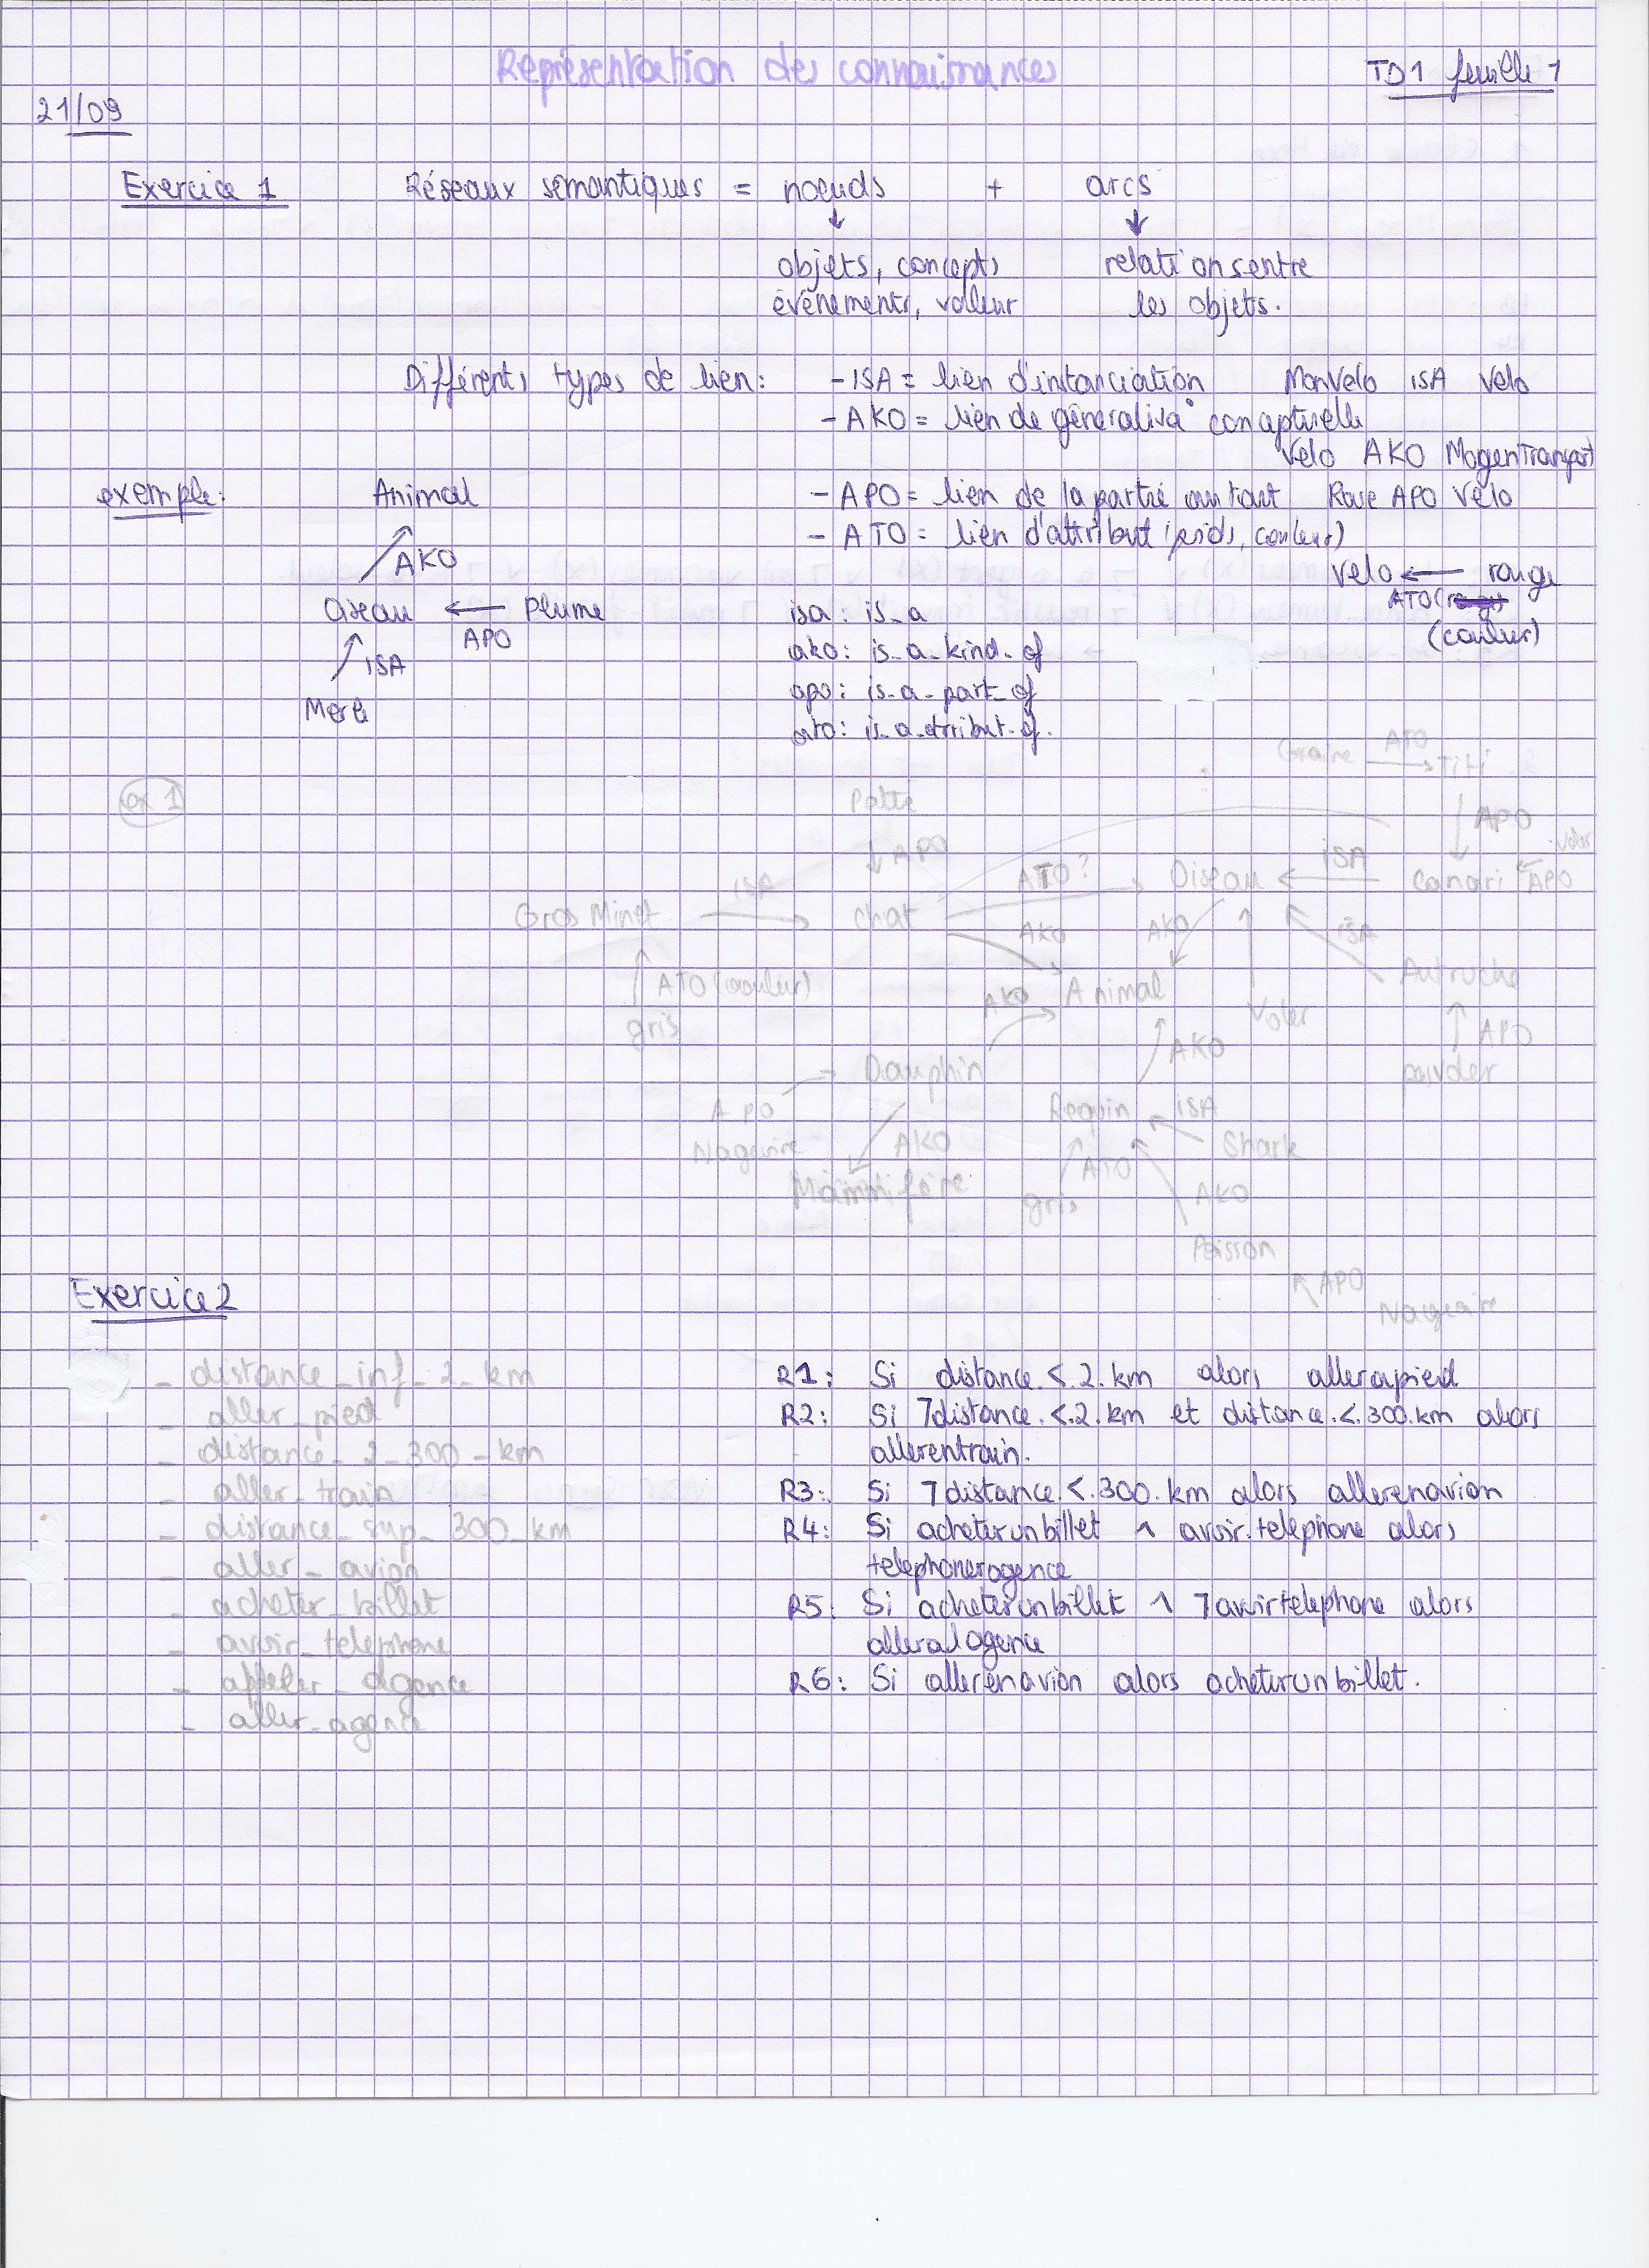 Représentation des connaissances
TD1 feuille 1
21/09
Exercice 1 Réseaux sémantiques = noeuds + arcs
objets, concepts relations entre
événements, valeur les objets.
Différents types de lien : - ISA = lien d'instanciation MonVelo ISA Velo
- AKO = lien de généralisa° conceptuelle
Velo AKO MoyenTransport
exemple: Animal - APO = lien de la partie au tout Roue APO Velo
- ATO = lien d'attribut (poids, couleur)
AKO
Velo ← rouge
ATO
(couleur)
Oiseau ← Plume
APO
ISA
isa : is_a
ako : is_a_kind_of
apo : is_a_part_of
ato : is_a_attribut_of.
ex 1
Graine ATO Titi
Patte
APO
APO
Voler
ISA
ATO?
Oiseau
ISA
Canari
APO
Gros Minet
chat
AKO
AKO
ISA
Autruche
ATO (couleur)
AKO
Animal
gris
Voler
APO
AKO
Dauphin
APO
Requin
ISA
Nageoire
AKO
Shark
ATO
Mammifère
gris
AKO
Poisson
APO
Nageoire
Exercice 2
- distance_inf_2_km
- aller_pied
- distance_2_300_km
- aller_train
- distance_sup_300_km
- aller_avion
- acheter_billet
- avoir_telephone
- appeler_agence
- aller_agence
R1 : Si distance.<.2.km alors allerapied
R2 : Si ⌐distance.<.2.km et distance.<.300.km alors
allerentrain.
R3 : Si ⌐distance.<.300.km alors allerenavion
R4 : Si acheterunbillet ∧ avoir.telephone alors
telephoneragence
R5 : Si acheterunbillet ∧ ⌐avoirtelephone alors
alleralagence
R6 : Si allerenavion alors acheterunbillet.